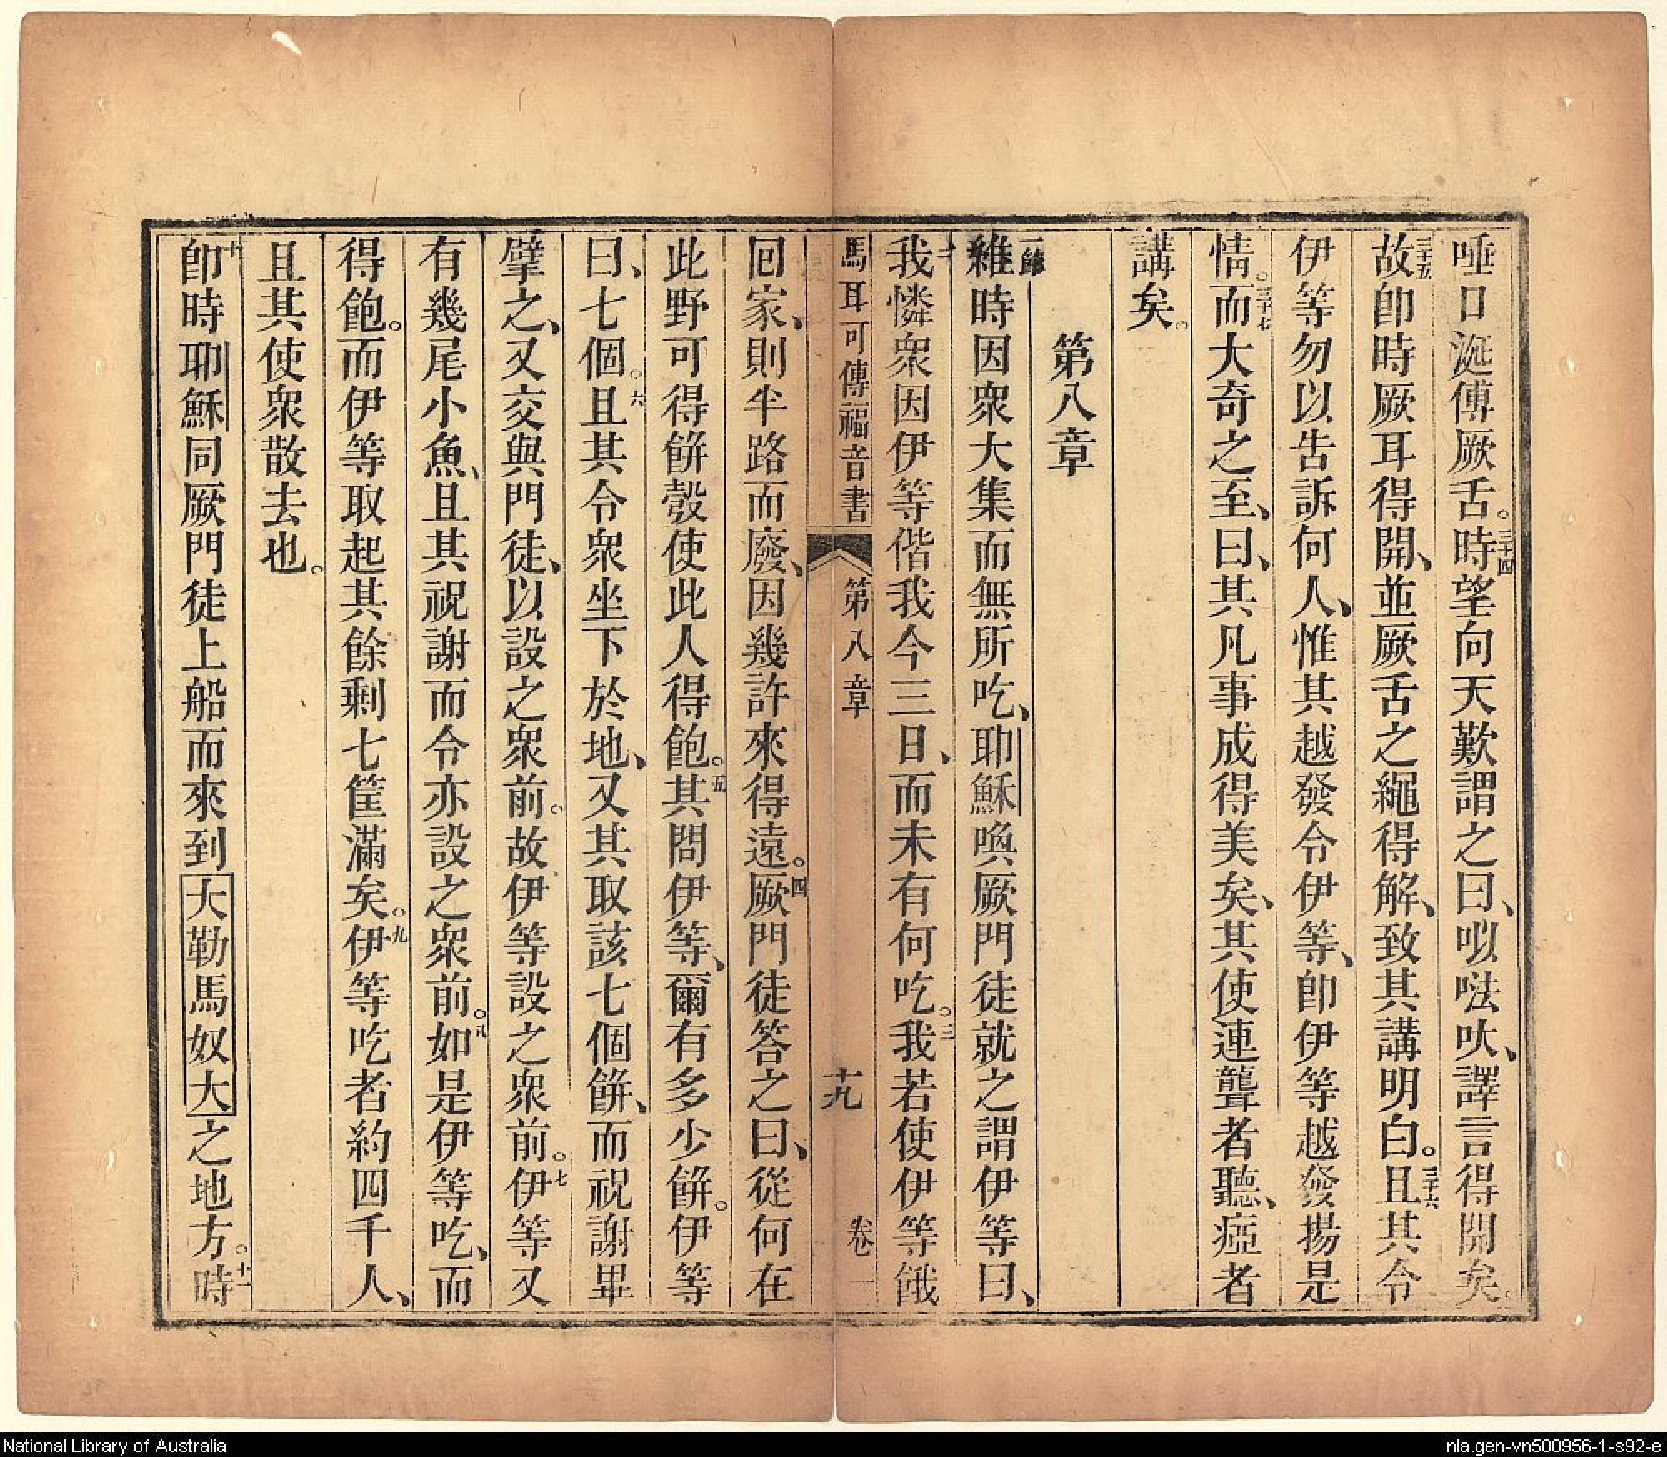 唾口涎傅厥舌。三十四時望向天歎謂之曰、㕽㗓吙、譯言得開矣。
三十五故卽時厥耳得開、並厥舌之繩得解、致其講明白。三十六且其令
伊等勿以告訴何人、惟其越發令伊等、卽伊等越發揚是
情。三十七而大奇之至、曰、其凡事成得美矣、其使連聾者聽、瘂者
講矣。
第八章
一節維時因衆大集而無所吃、耶穌喚厥門徒就之謂伊等曰、
二我憐衆因伊等偕我今三日、而未有何吃。三我若使伊等餓
馬耳可傳福音書 第八章 十九 卷一
回家、則半路而廢、因幾許來得遠。四厥門徒答之曰、從何在
此野可得餅彀使此人得飽。五其問伊等、爾有多少餅。伊等
曰、七個。六且其令衆坐下於地、又其取該七個餅、而祝謝畢
擘之、又交與門徒、以設之衆前。故伊等設之衆前。七伊等又
有幾尾小魚、且其祝謝而令亦設之衆前。八如是伊等吃、而
得飽。而伊等取起其餘剩七筐滿矣。九伊等吃者約四千人、
且其使衆散去也。
十卽時耶穌同厥門徒上船而來到大勒馬奴大之地方。十一時
National Library of Australia
nla.gen-vn500956-1-s92-e